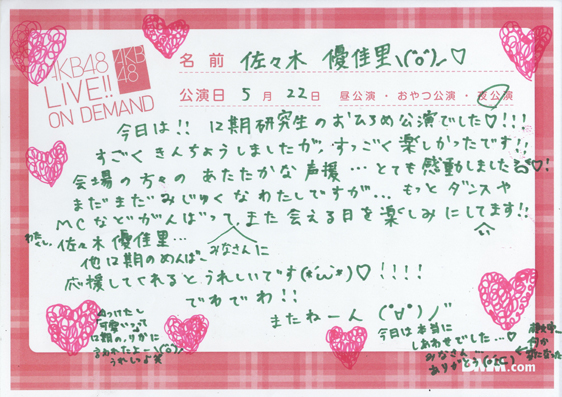 AKB48
LIVE!!
ON DEMAND
AKB
48
名前 佐々木 優佳里\(^o^)ノ♡
公演日 5月22日 昼公演・おやつ公演・夜公演
今日は!! 12期研究生のおひろめ公演でした♡!!!
すごくきんちょうしましたが、すっごく楽しかったです!!
会場の方々のあたたかな声援…とても感動しました♡!
まだまだみじゅくなわたしですが… もっとダンスや
MCなどがんばって、また会える日を楽しみにしてます!!
い
わたくし、佐々木優佳里…
他12期のめんばー みなさんに
応援してくれるとうれしいです(*'ω'*)♡!!!!
でわでわ!!
またねーん (°∀°)ノ"
今日は本当に
しあわせでした…♡
みなさん…
ありがとう
可愛いなって
12期の
言われたよー\(^o^)ノ
うれしいよ笑
.com